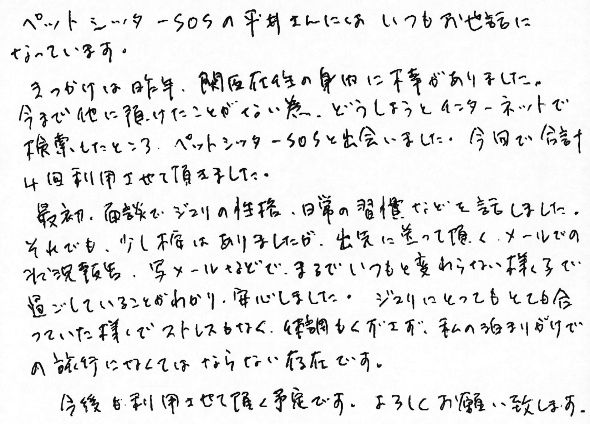 ペットシッターSOSの平井さんにはいつもお世話に
なっています。
きっかけは昨年、関西在住の身内に不幸がありました。
今まで他に預けたことがない為、どうしようとインターネットで
検索したところ、ペットシッターSOSと出会いました。今回で合計
4回利用させて頂きました。
最初、面談でジュリの性格、日常の習慣などを話しました。
それでも、少し不安はありましたが、出先に送って頂く、メールでの
状況報告、写メールなどで、まるでいつもと変わらない様子で
過ごしていることがわかり、安心しました。ジュリにとってもとても合
っていた様でストレスもなく、体調もくずさず、私の泊まりがけで
の旅行になくてはならない存在です。
今後も利用させて頂く予定です。よろしくお願い致します。